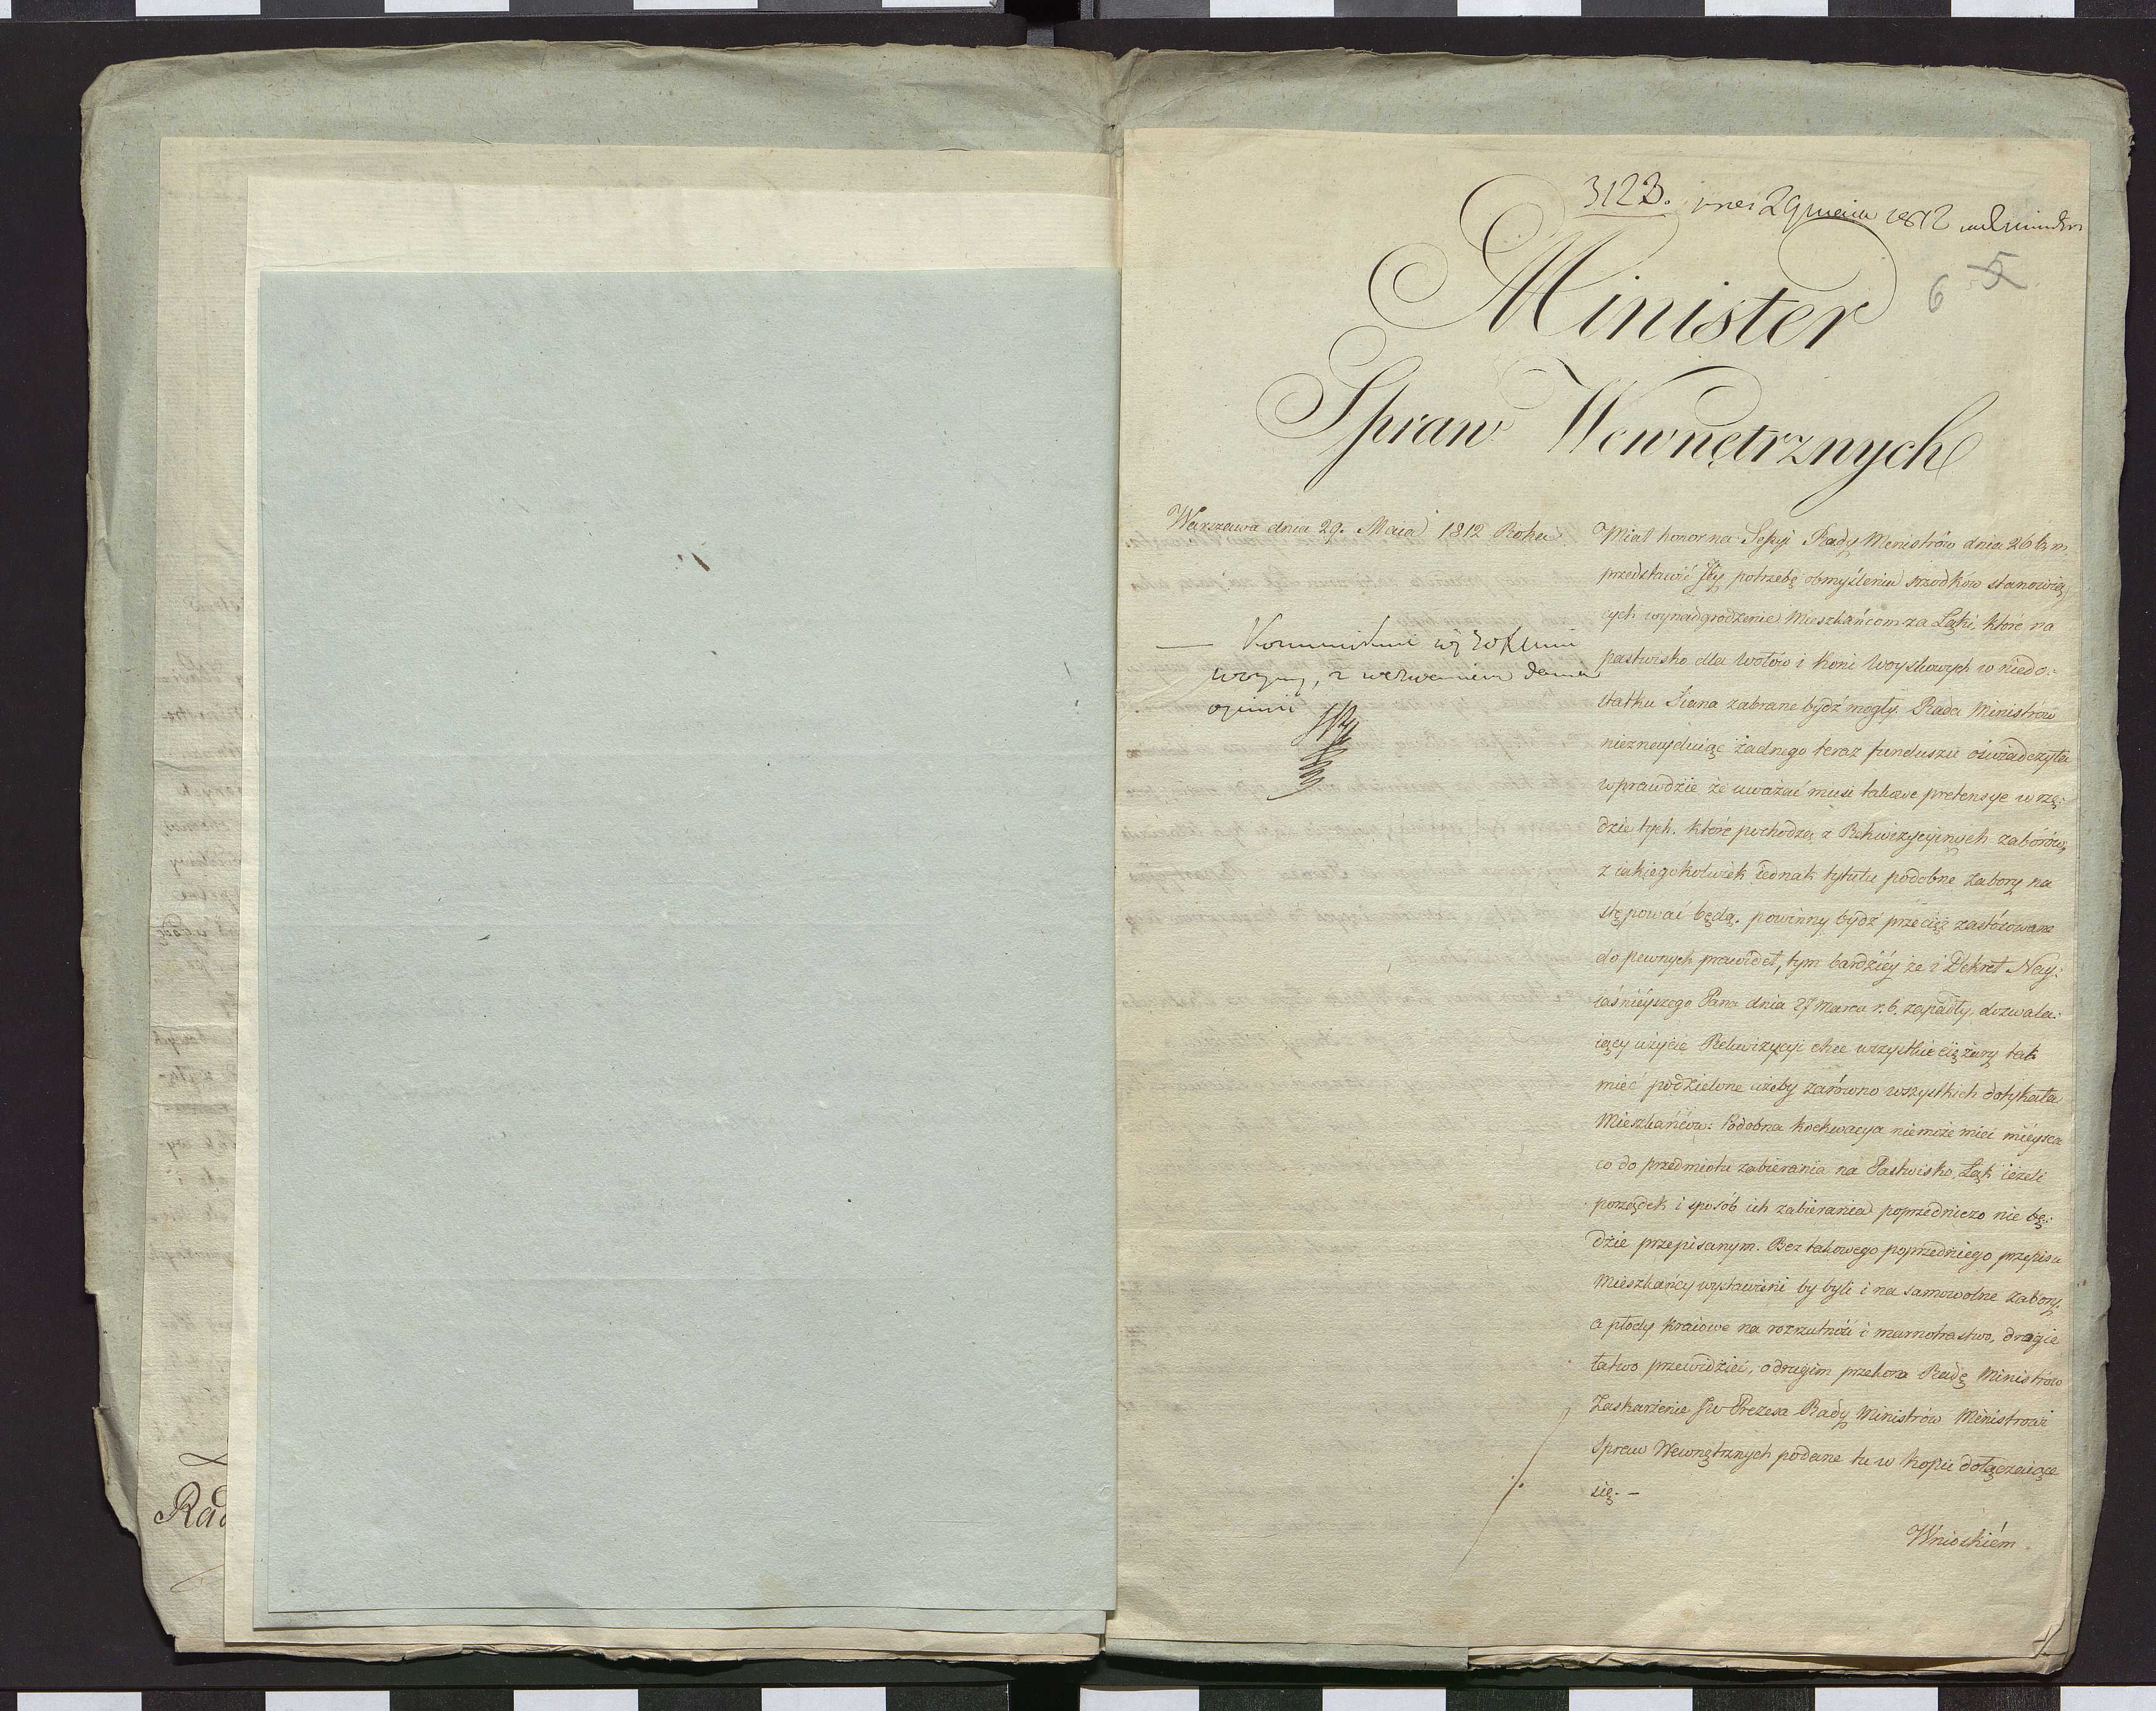 3123.
6 5
Minister
Spraw Wewnętrznych
Warszawa dnia 29. Maia 1812 Roku
opinii
Miał honor na Sessyi Rady Ministrów dnia 26 b.m.
przedstawić Jey potrzebę obmyślenia srzodków stanowią
cych wynadgrodzenie Mieszkańcom za Łąki, które na
pastwisko dla Wołów i Koni Woyskowych w niedo:
statku Siana zabrane bydź mogły. Rada Ministrów
nieznayduiąc żadnego teraz funduszu oświadczyła
wprawdzie że uważać musi takowe pretensye w rzę:
dzie tych, które pochodzą z Rekwizycyinych zaborów,
z iakiegokolwiek iednak tytułu podobne zabory na
stępować będą, powinny bydź przecież zastosowane
do pewnych prawideł, tym bardziéy że i Dekret Nay:
iaśnieyszego Pana dnia 27 Marca r. b. zapadły, dozwala:
iący użycie Rekwizycyi chce wszystkie ciężary tak
mieć podzielone ażeby zarówno wszystkich dotykała
Mieszkańców: Podobna koekwacya niemoże mieć mieysca
co do przedmiotu zabierania na Pastwisko Łąk ieżeli
porządek i sposób ich zabierania poprzedniczo nie bę:
dzie przepisanym. Bez takowego poprzedniego przepisu
Mieszkańcy wystawieni by byli i na samowolne zabory,
a płody kraiowe na rozrzutność i marnotrastwo, dragie
łatwo przewidzieć, o drugim przekona Radę Ministrów
Zaskarżenie JW Prezesa Rady Ministrów Ministrowi
Spraw Wewnętrznych podane tu w kopii dołączaiące
się. –
Wnioskiém
Rad